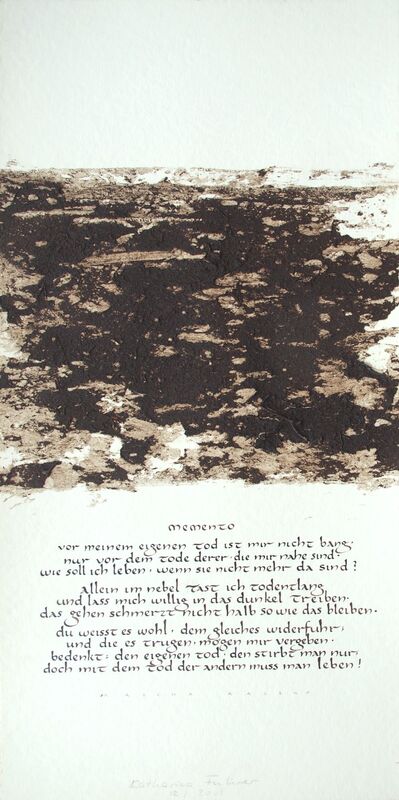 memento
vor meinem eigenen tod ist mir nicht bang.
nur vor dem tode derer · die mir nahe sind.
wie soll ich leben · wenn sie nicht mehr da sind?
allein im nebel tast ich todentlang
und lass mich willig in das dunkel treiben.
das gehen schmerzt nicht halb so wie das bleiben.
du weisst es wohl · dem gleiches widerfuhr,
und die es trugen, mögen mir vergeben.
bedenkt: den eigenen tod · den stirbt man nur,
doch mit dem tod der andern muss man leben!
mascha kaléko
Katharina